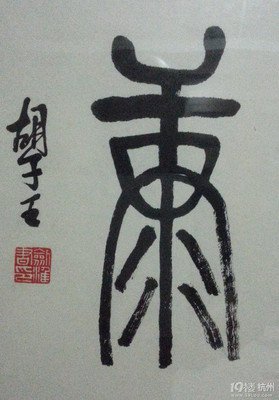 康
胡子王
19楼 杭州